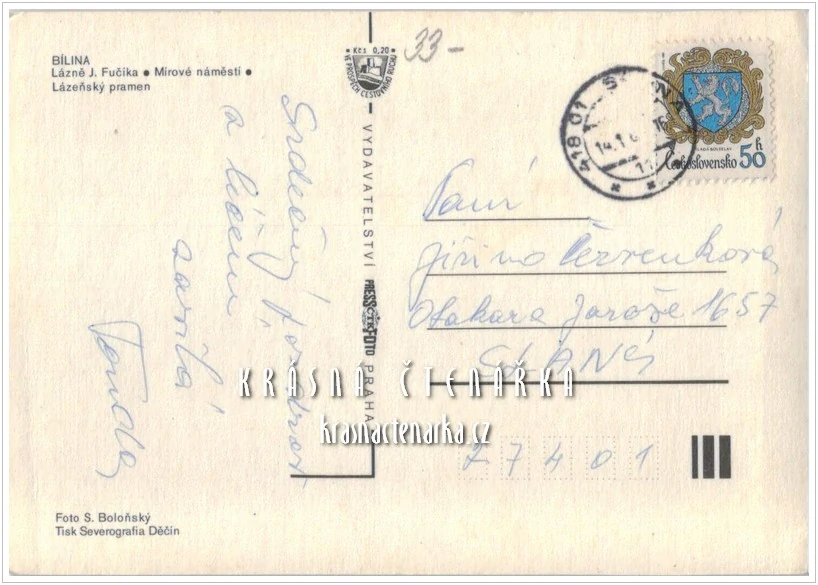 BÍLINA
Lázně J. Fučíka ● Mírové náměstí ●
Lázeňský pramen
Kčs 0,20
VE PROSPĚCH CESTOVNÍHO RUCHU
33-
418 01
14.1.
Československo 50 h
VYDAVATELSTVÍ PRESSFOTO PRAHA
Srdečný pozdrav
z lázní
zasílá
Paní
Jiřina Červenková
Otakara Jaroše 1657
SLANÝ
27401
KRÁSNÁ ČTENÁŘKA
krasnactenarka.cz
Foto S. Boloňský
Tisk Severografia Děčín